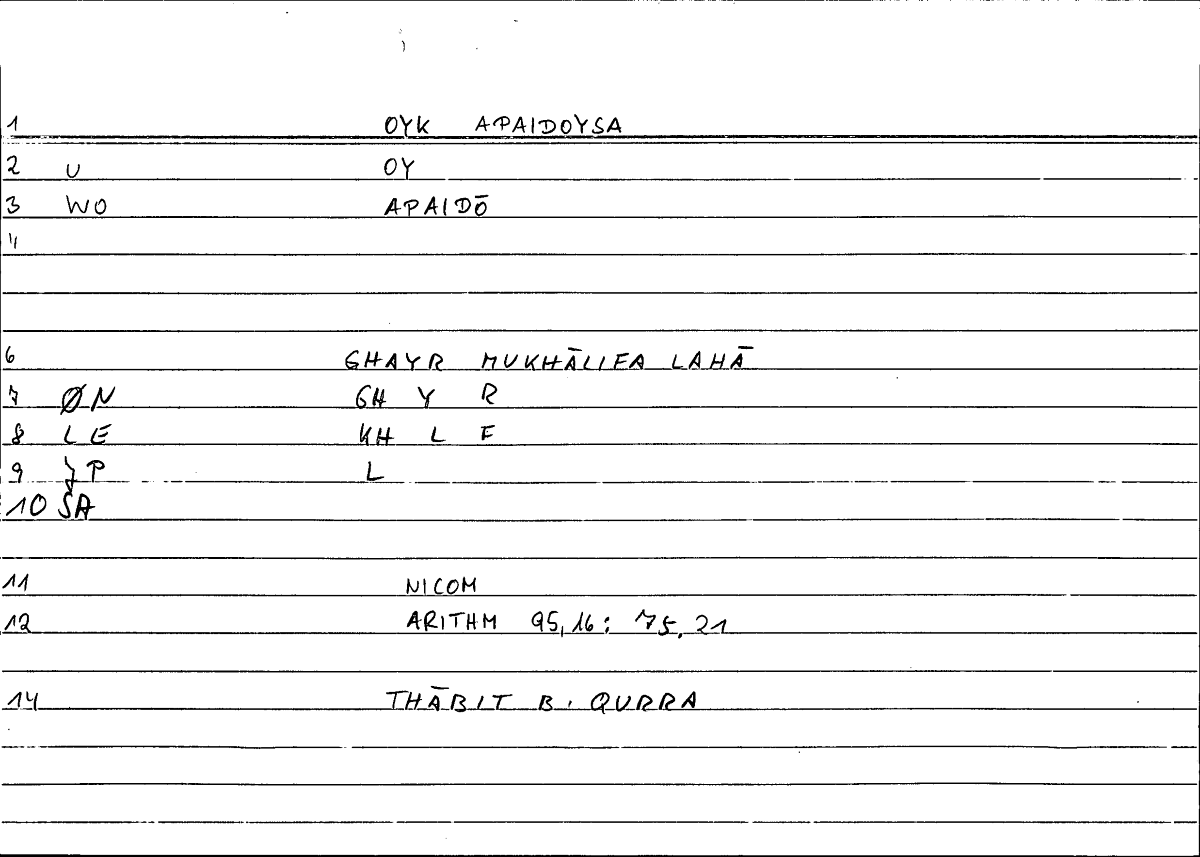 1 OYK APAIDOYSA
2 U OY
3 WO APAIDŌ
4
6 GHAYR MUKHĀLIFA LAHĀ
7 ØN GH Y R
8 LE KH L F
9 JP L
10 SA
11 NICOM
12 ARITHM 95,16: 75,21
14 THĀBIT B. QURRA